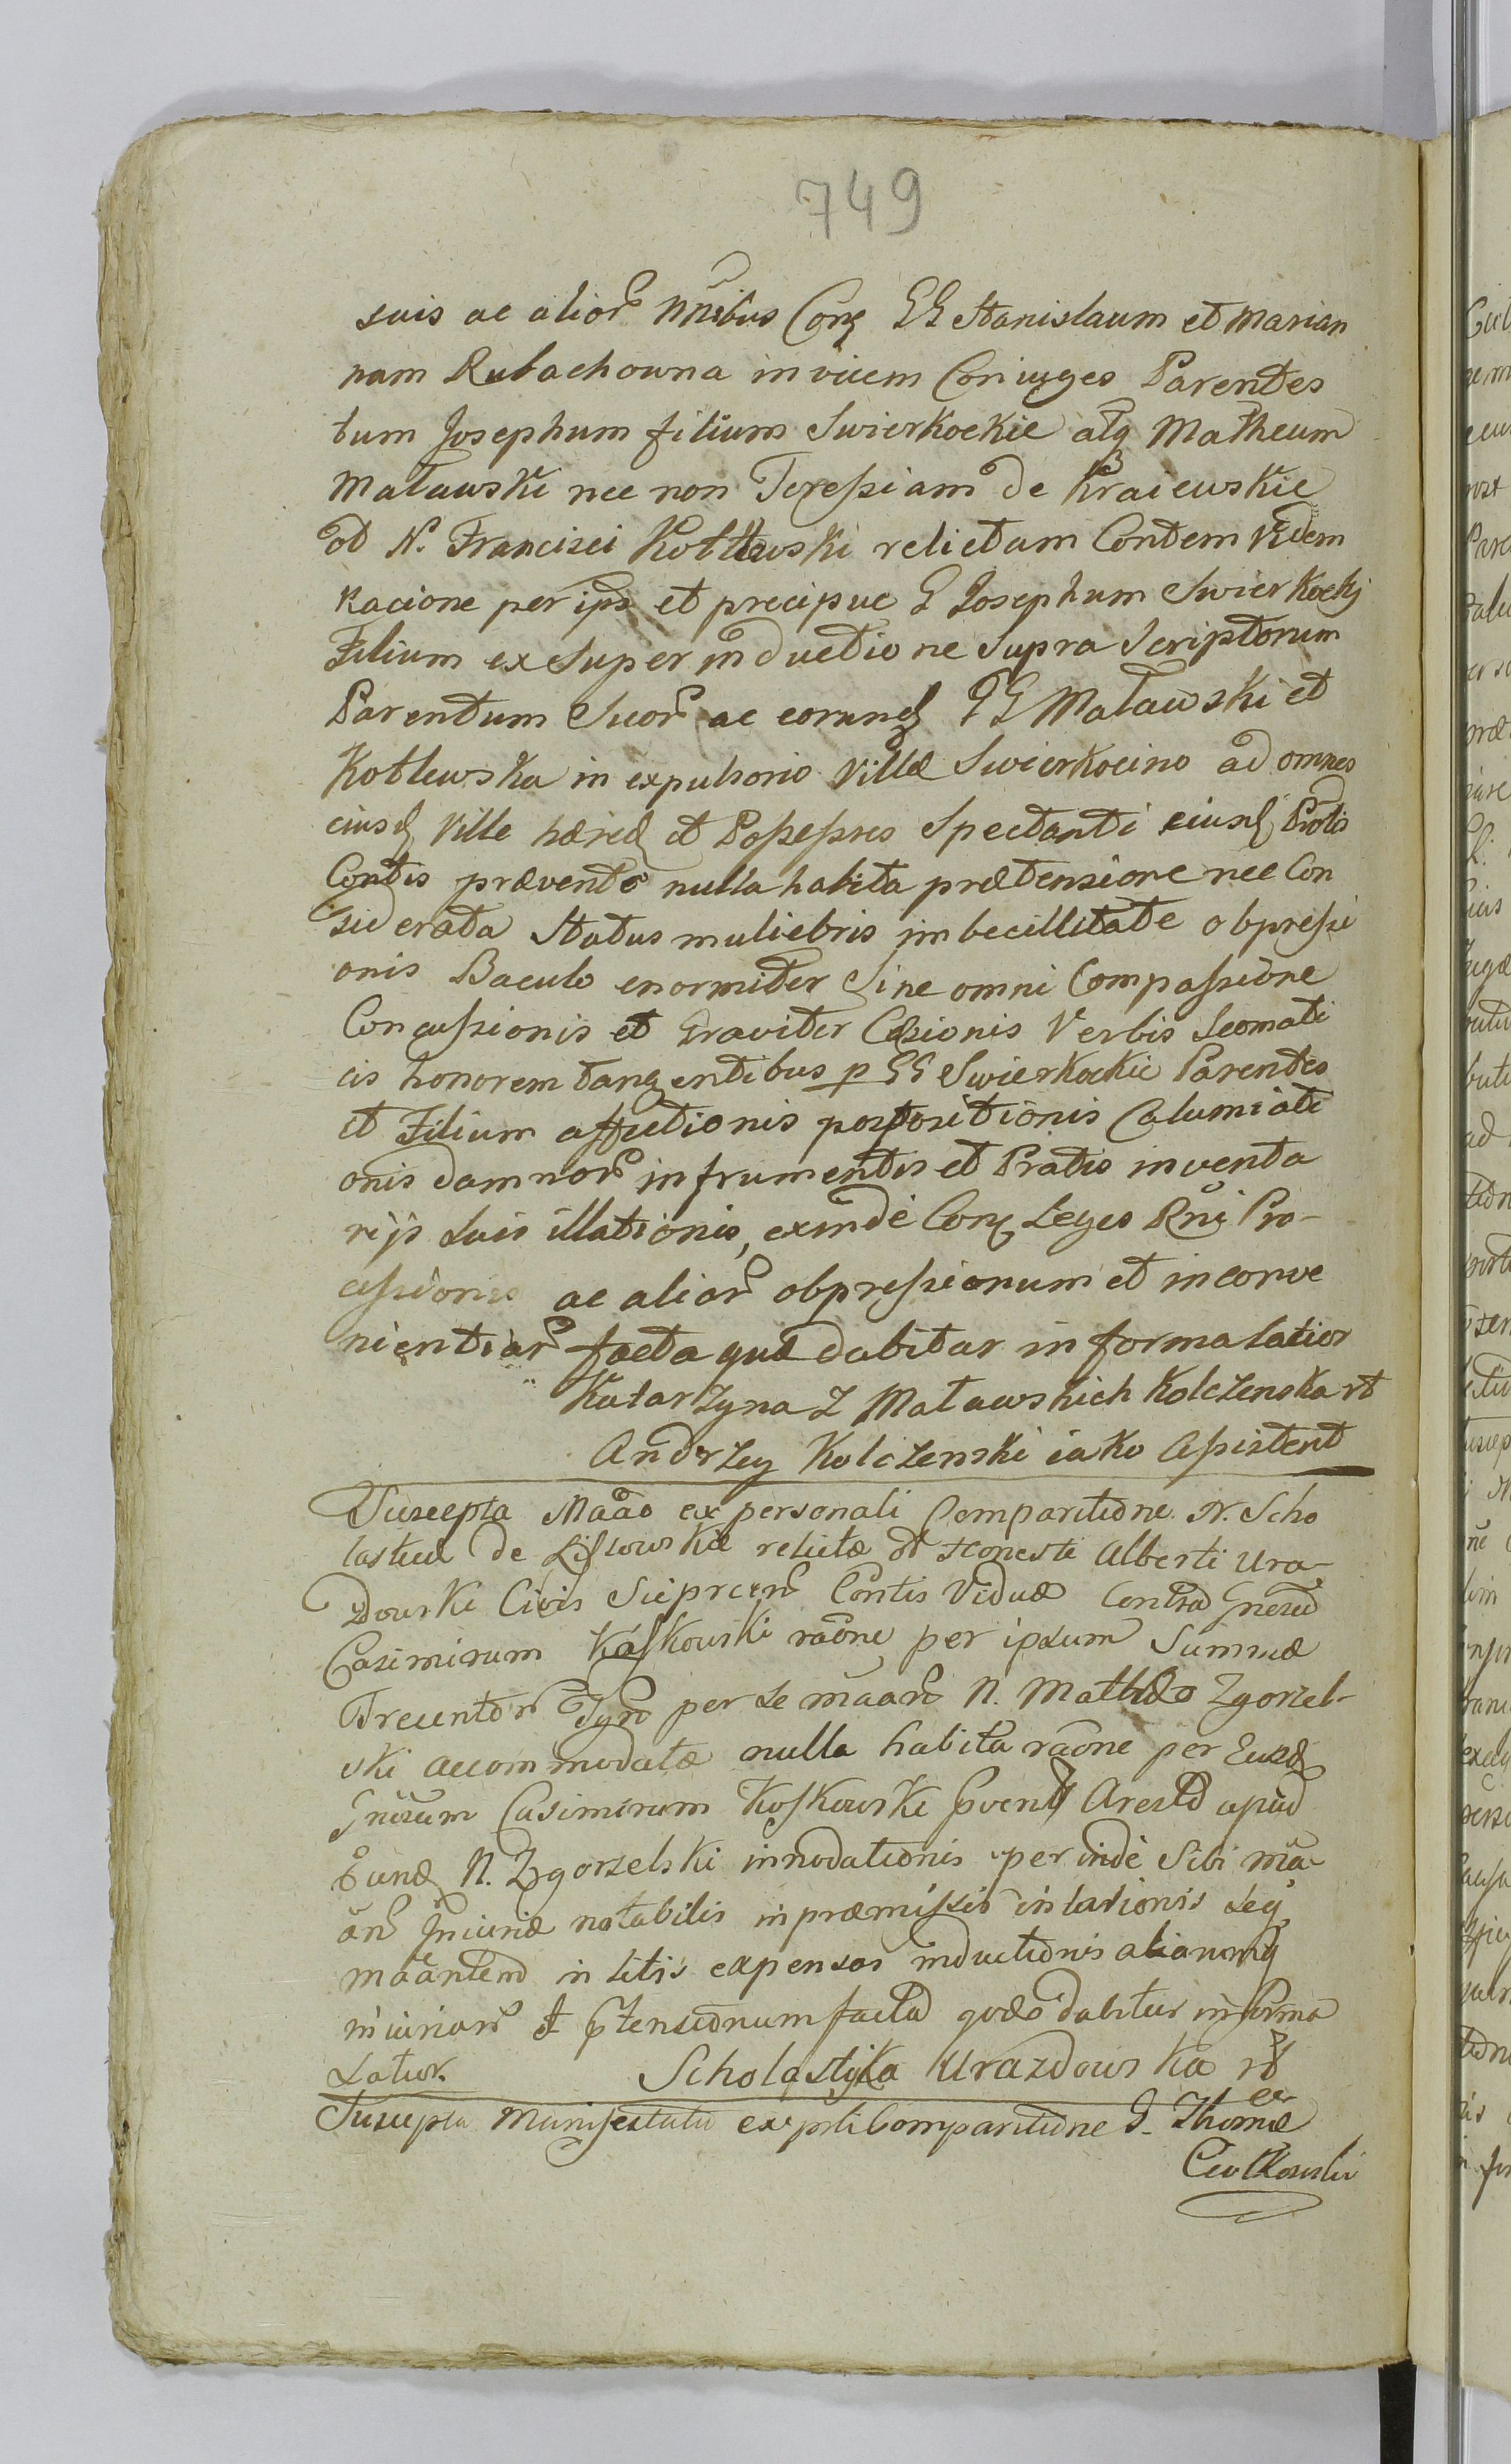 749
suis ac alior Nnibus Con GG Stanislaum et Marian
nam Rubachowna invicem Coniuges Parentes
tum Josephum filium Swierkockie atq Matheum
Matawski nec non Teressiam de Kraiewskie
ol N. Francisci Kotlewski relictam Contem Videm
Racione per ips et precipue G Josephum Swierkockj
Filium ex Super inductione Supra Scriptorum
Parentum Suor ac eorund GG Matawski et
Kotlewska in expulsono Villæ Swierkocino ad omnes
eiusd Ville hæred et Possessres Spectanti eiusd Protis
Contis prævento nulla habita prætensione nec Con
siderata Status muliebris imbecillitate obpressi
onis Baculo enormiter Sine omni Compassione
Concussionis et Graviter Cæsionis Verbis Scomati
cis honorem tangentibus p GG Swierkockie Parentes
et Filium affectionis postpositionis Calumiati
onis damnor in frumentis et Pratis inventa
rijs suis illationis, exindè Con Leges Rni Pro-
cessionis ac alior obpressionum et inconve
nientiar facta quæ dabitur in forma latior
Katarzyna Z Matawskich Kolczenska rt
Andrzey Kolczenski iako Assistent
Suscepta Maao ex personali Comparitione N. Scho
lasticæ de Lissowskie relictæ ol Honesti Alberti Ura-
zdowski Civis Sieprcens Contis Viduæ Contra Gnesud
Casimirum Kaskowski raone per ipsum Summæ
Trecentor Tynf per se maan N. Matthæo Zgorzel-
ski accommodatæ nulla habita raone per Eund
Gnosum Casimirum Koskowski Arestd apud
Eund N. Zgorzelski innodationis perindè Sibi ma-
an Jniuriæ notabilis in præmissis inlationis Seq
maantem in litis expensas inductionis aliarumq
iniuriar et Ptensionum facta quæ dabitur in forma
Latior. Scholastyka Urazdowska rt
Suscepta Manifestatio ex prli Comparitione G. Thomæ
Ciolkowski